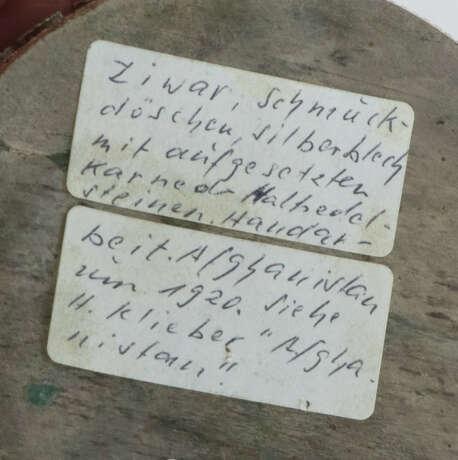 Ziwar, Schmuck-
döschen, Silberblech
mit aufgesetzten
Karneol-Halbedel-
steinen. Handar-
beit. Afghanistan
um 1920. Siehe
H. Klieber "Afgha-
nistan."